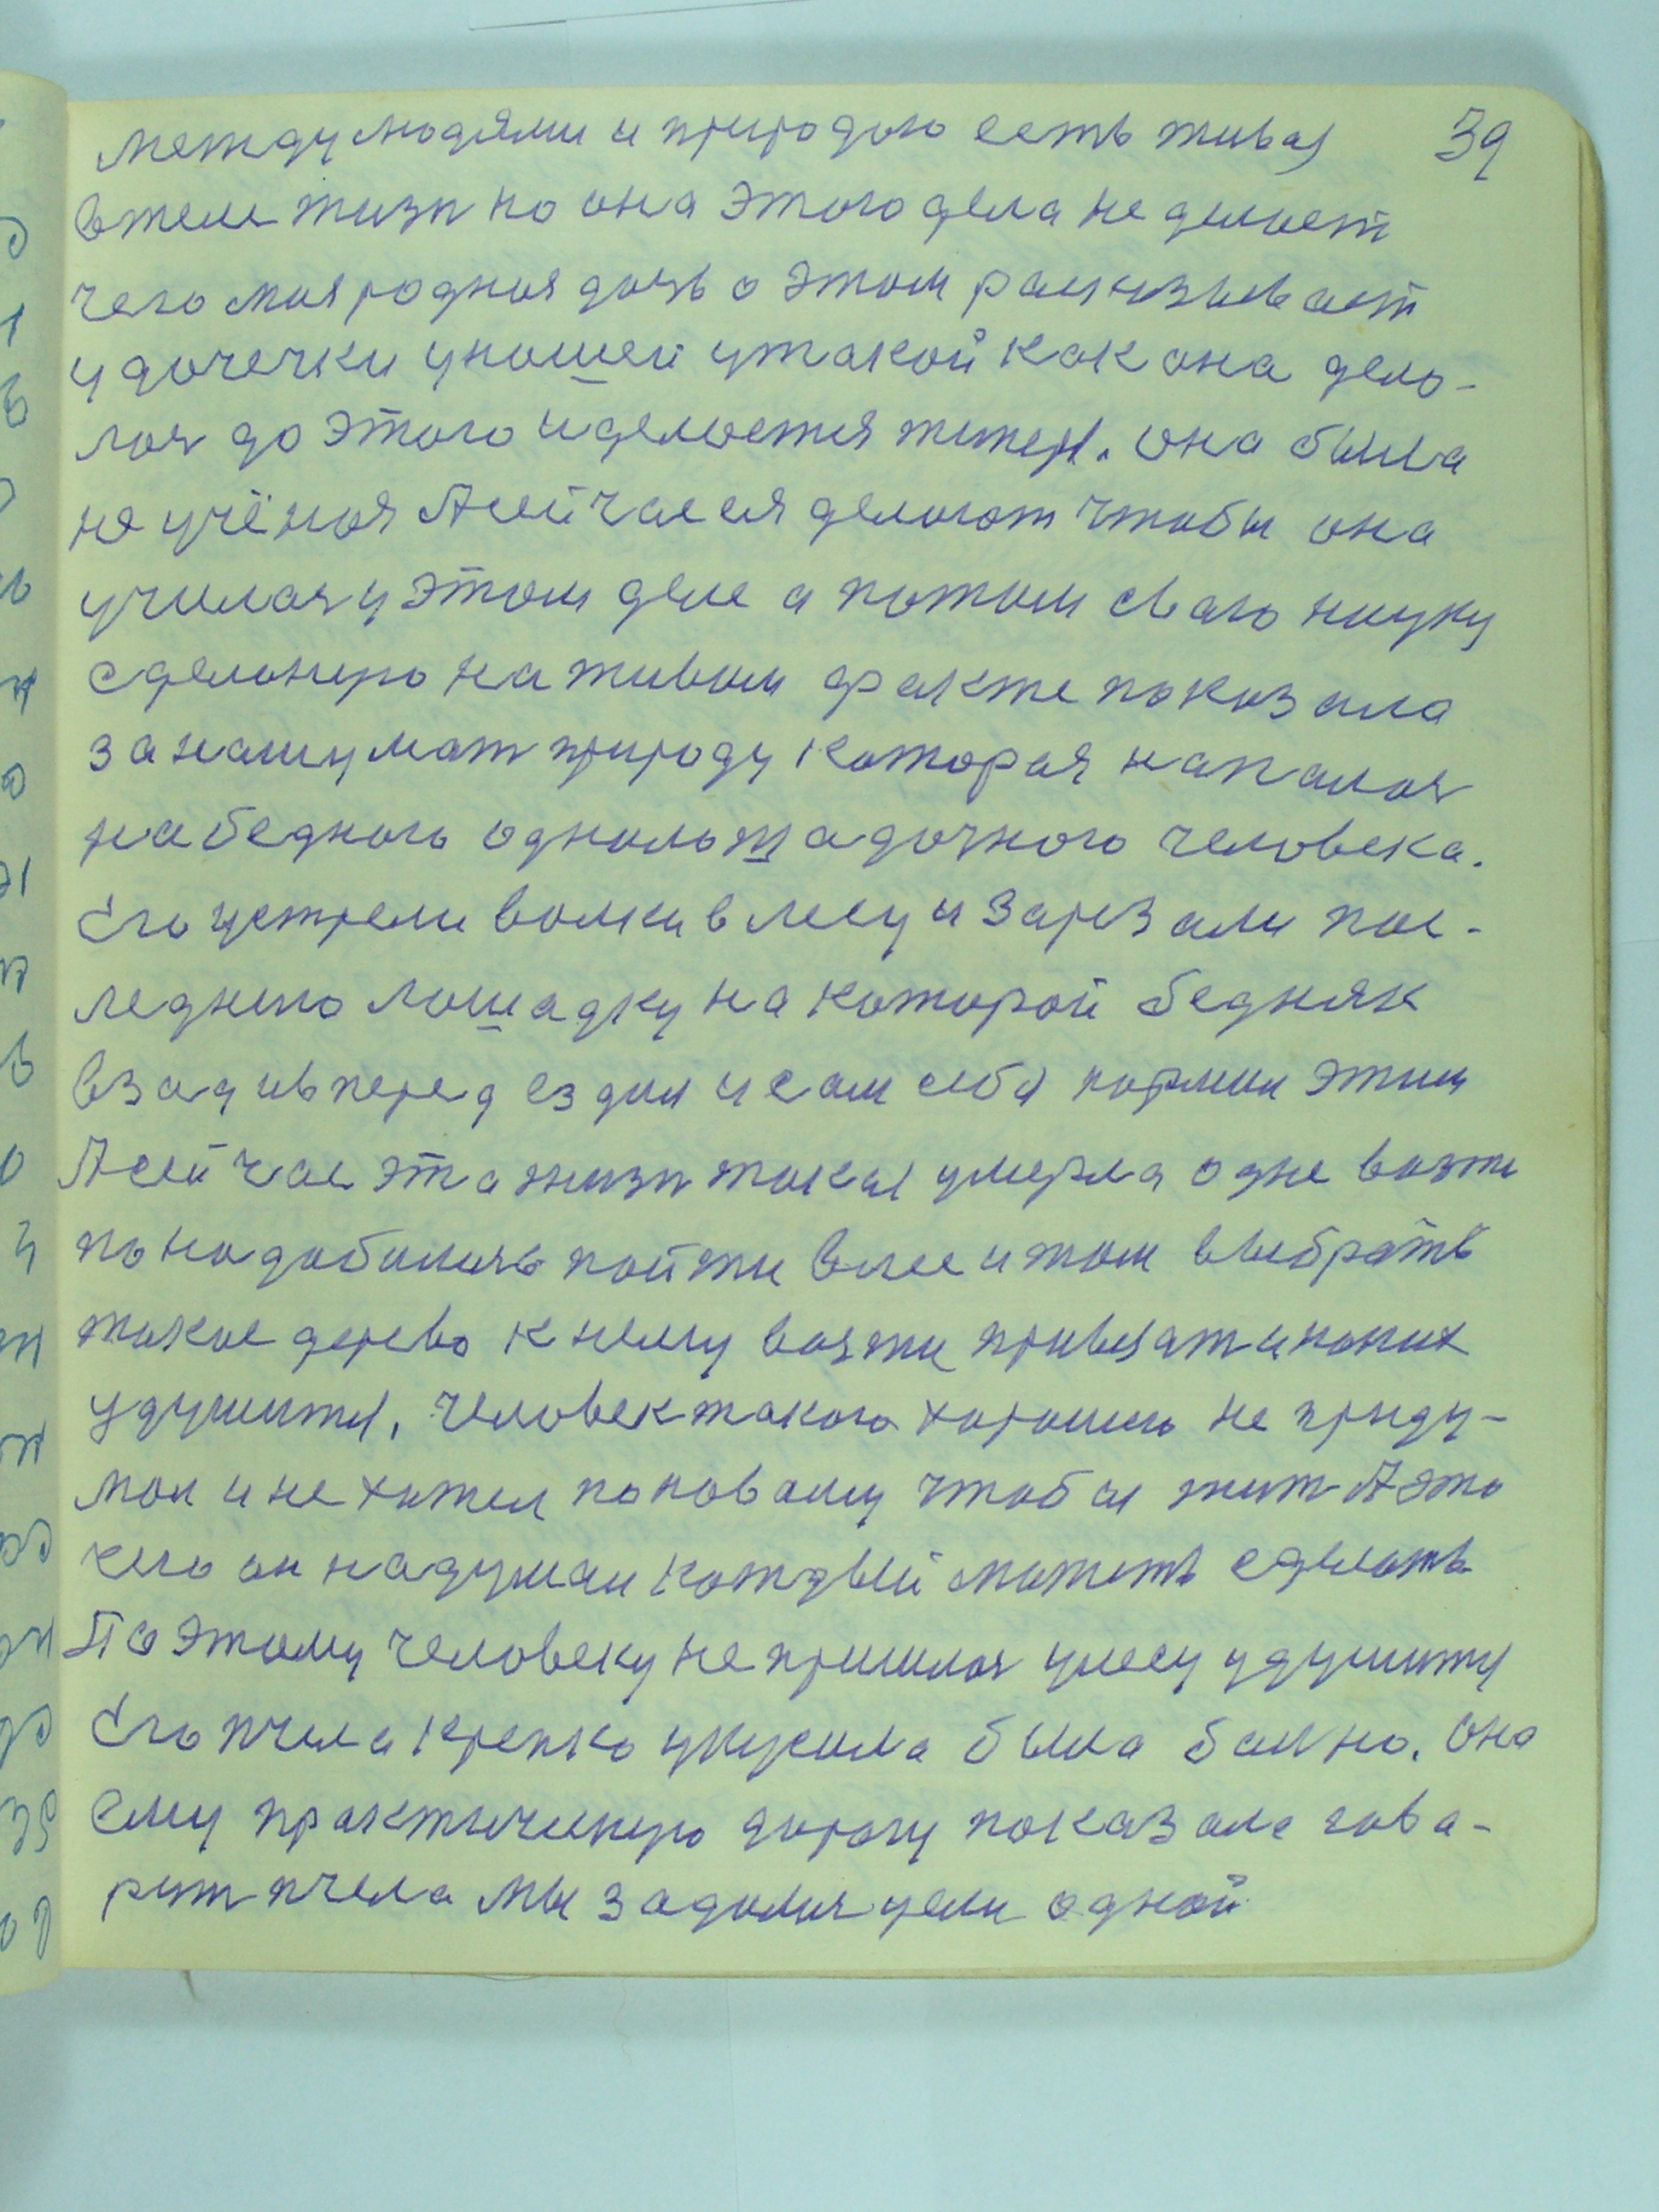 между людями и природою есть живая 39
в теле жизн но она этого дела не делает
чего моя родная дочь о этом расказывает
у дочечки у нашей у такой как она дела-
лась до этого и делается типерь. она была
не учёная А сийчас ея делают чтобы она
училась у этом деле а потом сваю науку
сделаную на живом факте показала
за нашу мат природу которая напалась
на бедного одноло ш адочного человека.
Его устрели волки в лесу и зарезали пос-
леднию лошадку на которой бедняк
взад и вперед ездил и сам себя кормил этим
А сийчас эта жизн такая умерла одне вожи
понадобились пойти в лес и там выбрать
такое дерево к нему вожжи привязат и на них
удушится, Человек такого хорошего не приду-
мал и не хотел по новаму чтобы жит А это
чего он надумал каждый можеть сделать
По этому человеку не пришлось у лесу удушится
Его пчела крепко укусила была болно. Она
ему практическую дорогу показала гава-
рит пчела мы задались цели одной